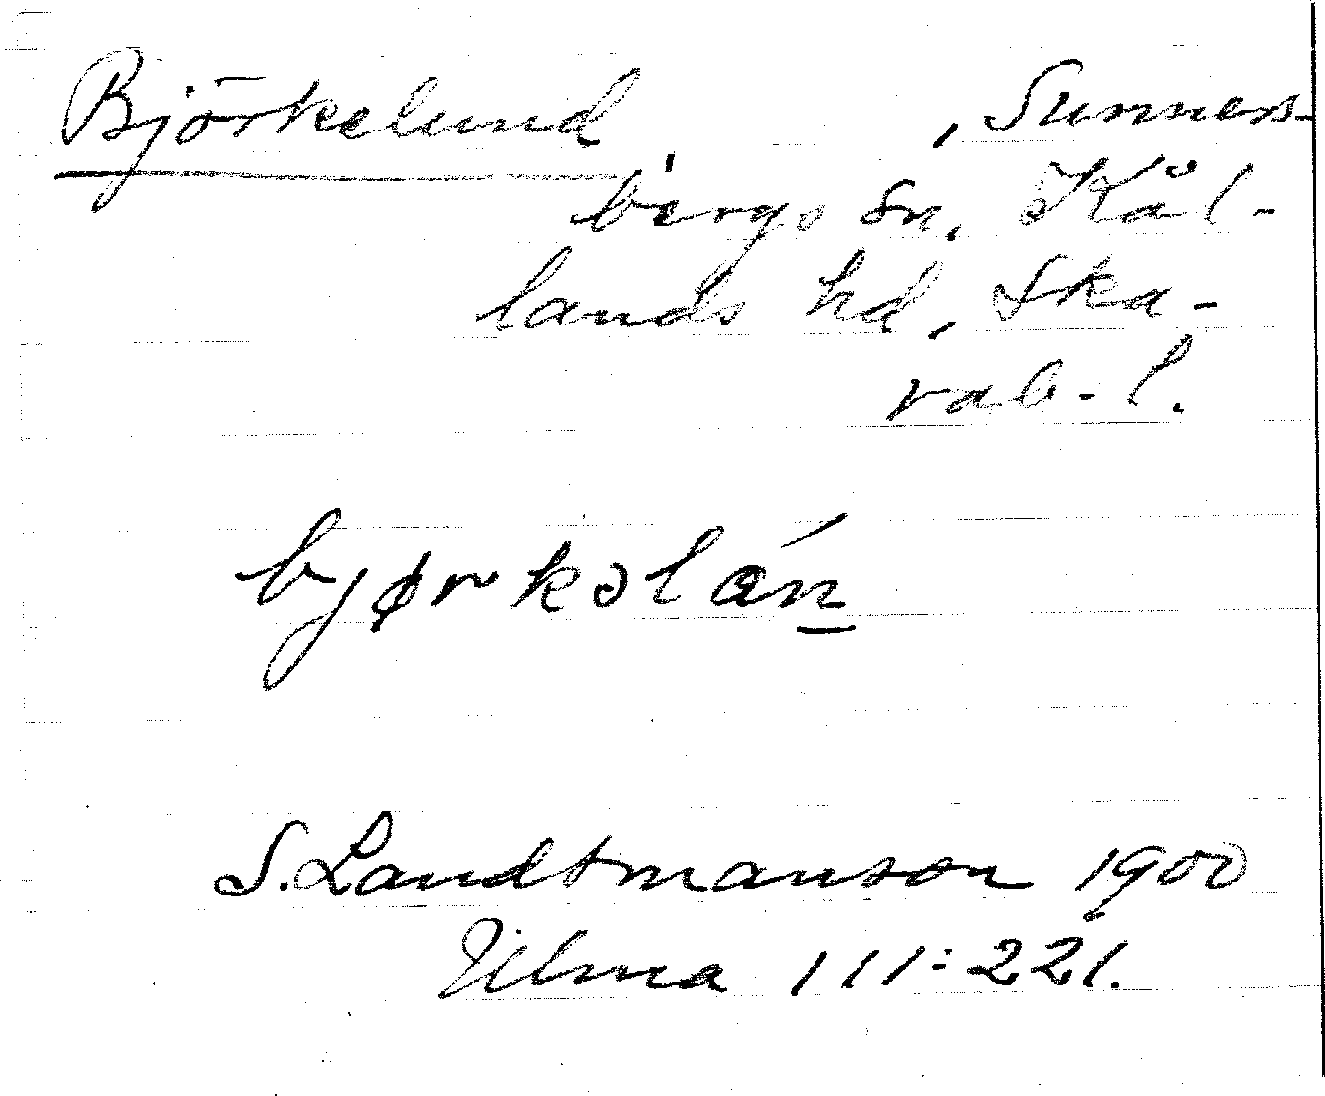 Björkelund , Sunners-
bergs sn, Kål-
lands hd, Ska-
rab. l.
bjørkəlán̲
S. Landtmanson 1900
111:221.